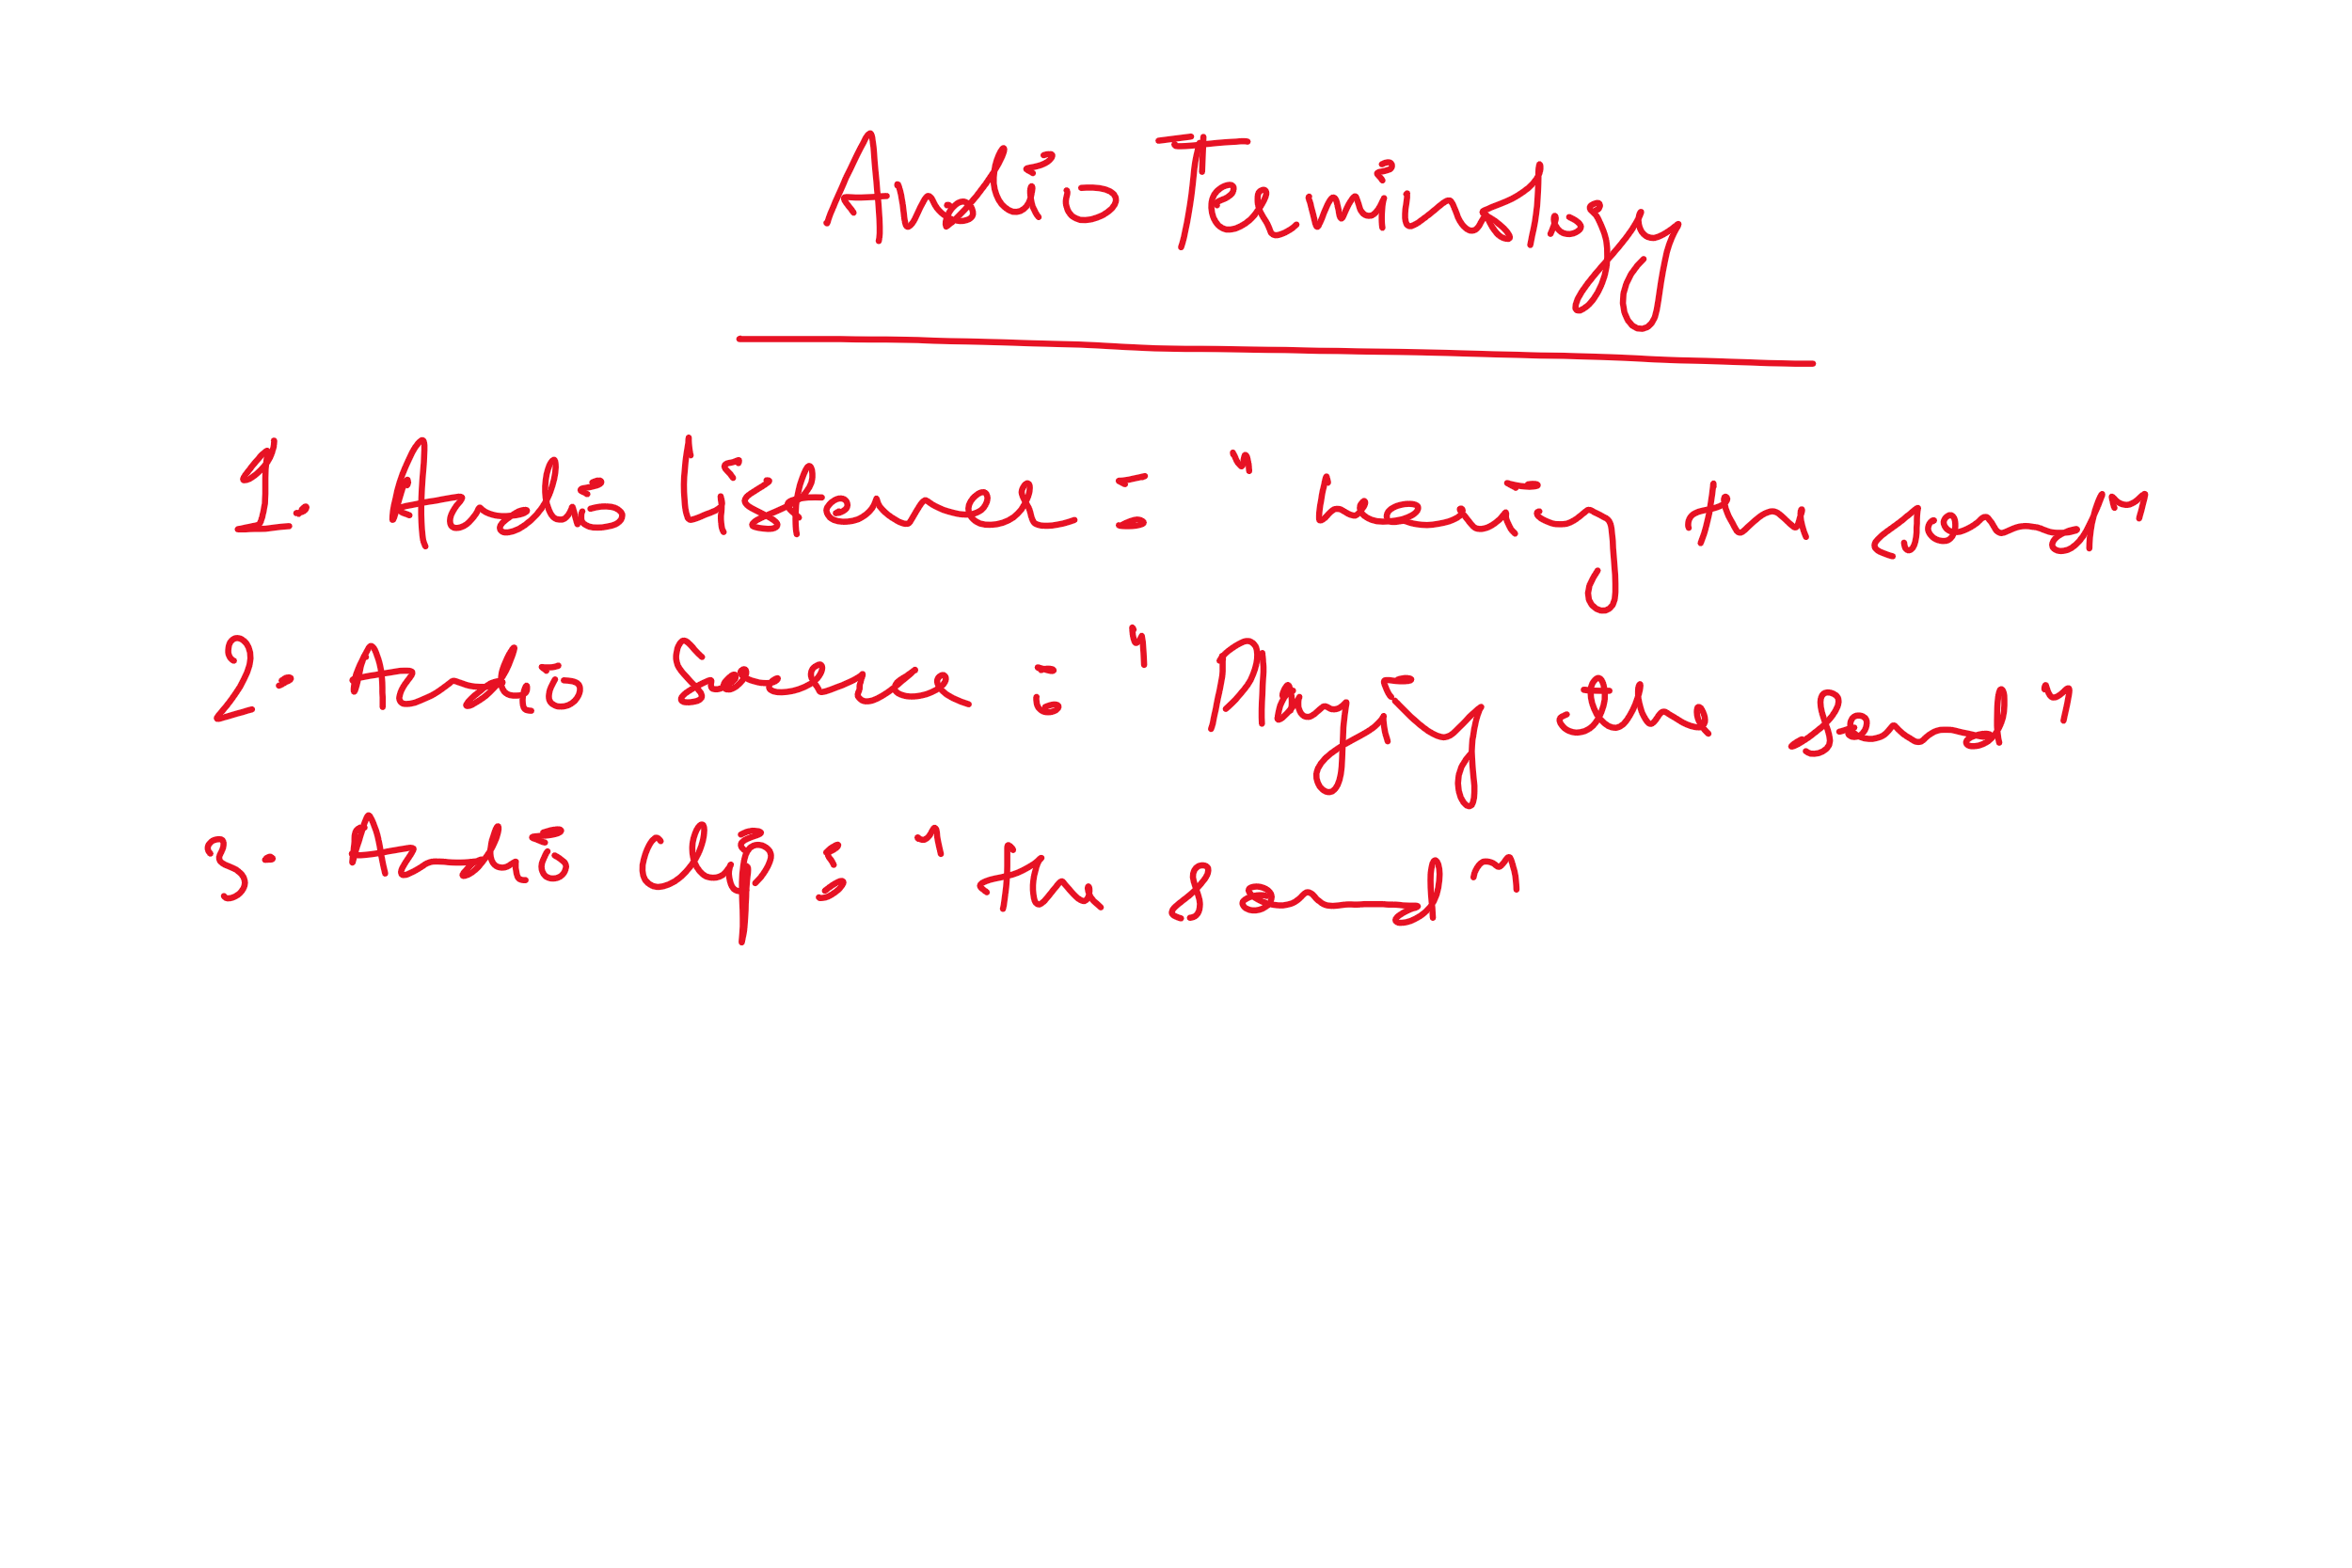 Audio Terminology
1. Audio listener - " hearing the sound "
2. Audio Source : " Playing the sound "
3. Audio clip : " the sound "